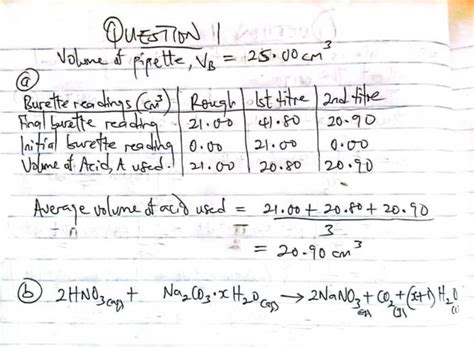 QUESTION 1
Volume of pipette, VB = 25.00 cm³
(a)
Burette readings (cm³) | Rough | 1st titre | 2nd titre
Final burette reading | 21.00 | 41.80 | 20.90
Initial burette reading | 0.00 | 21.00 | 0.00
Volume of Acid, A used. | 21.00 | 20.80 | 20.90
Average volume of acid used = 21.00 + 20.80 + 20.90
3
= 20.90 cm³
(b) 2HNO₃(aq) + Na₂CO₃·xH₂O(aq) → 2NaNO₃(aq) + CO₂(g) + (x+1)H₂O(l)